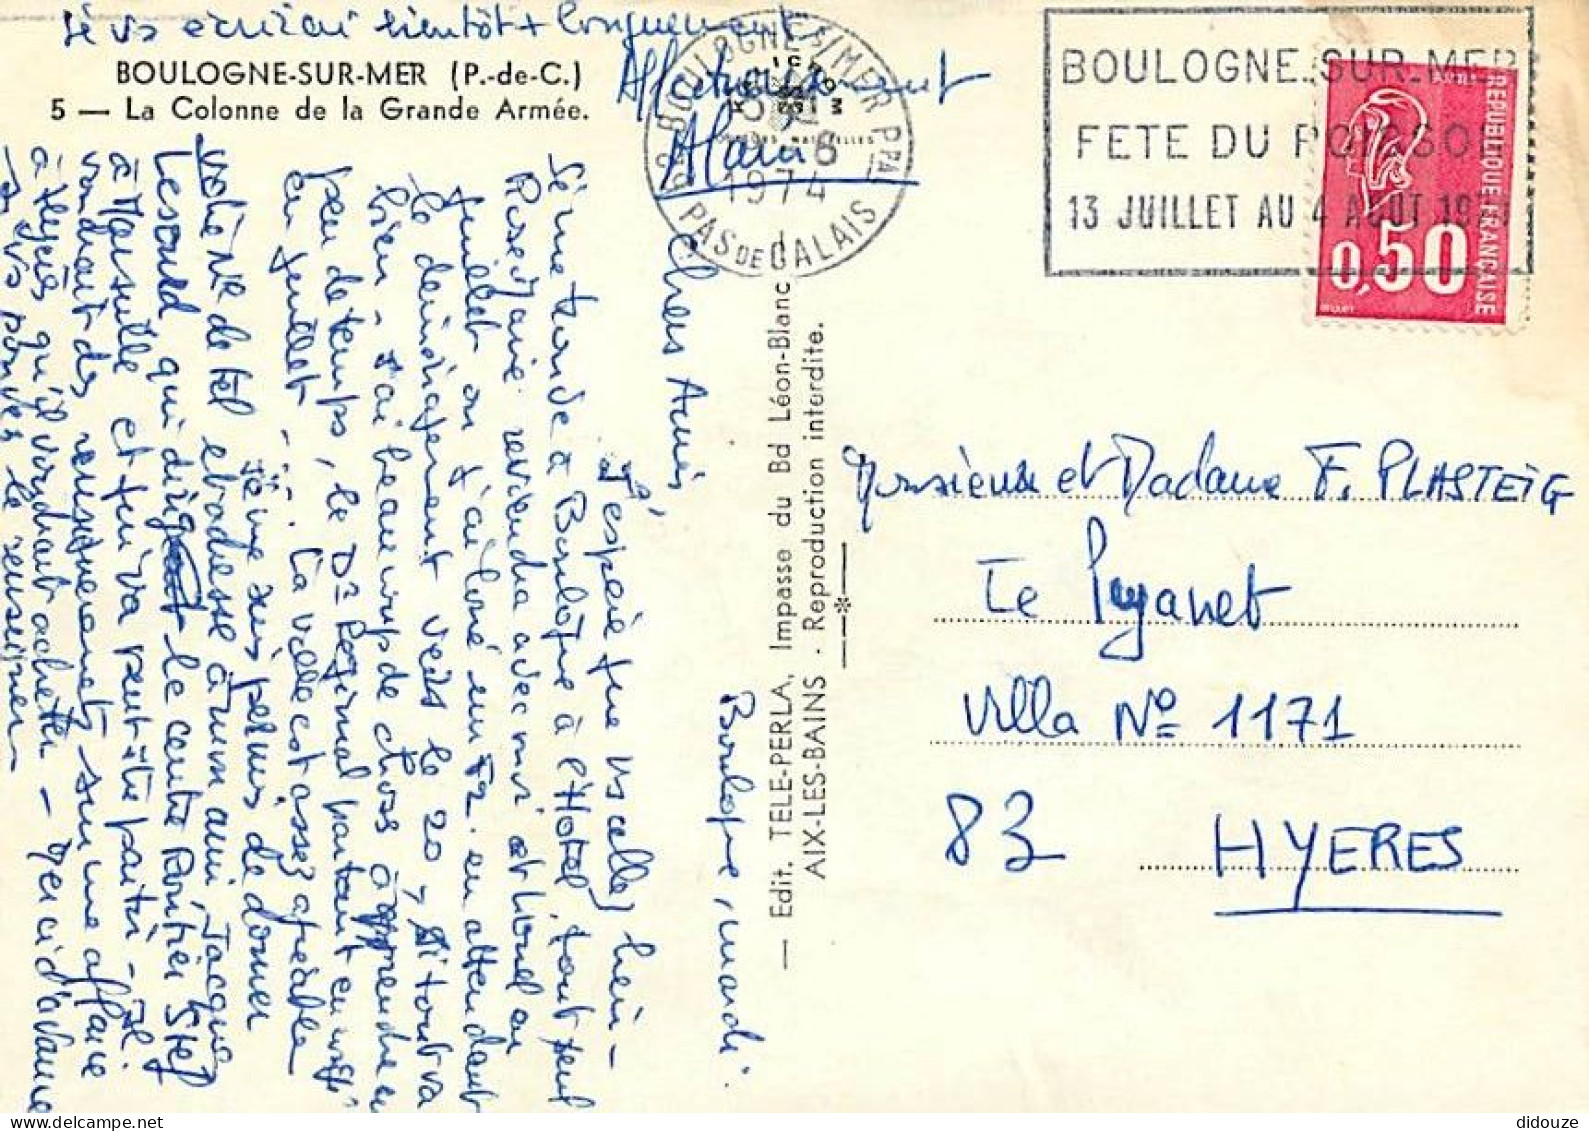 Je vs écrirai bientôt + longuement
Affectueusement
Alain
BOULOGNE-SUR-MER (P.-de-C.)
5 — La Colonne de la Grande Armée.
62 BOULOGNE S/MER PPAL
6
1974
PAS DE CALAIS
BOULOGNE-SUR-MER
FETE DU POISSON
13 JUILLET AU 4 AOUT 1974
REPUBLIQUE FRANÇAISE
0,50
Boulogne, mardi.
Chers Amis,
J'espère que vs allez bien —
Je me trouve à Boulogne à l'Hotel, tout seul
Rose Marie reviendra avec moi et Lionel en
Juillet où j'ai loué un F2. en attendant
le déménagement vers le 20, Si tout va
bien — J'ai beaucoup de choses à apprendre en
peu de temps, le Dr Régional partant en
en Juillet — ... La ville est assez agréable
Je me suis permis de donner
votre No de tél et adresse à mon ami, Jacques
Lesourd qui dirige le centre
à Marseille et qui va peut-être partir — Il
voudrait des renseignements sur une affaire
à Hyères qu'il voudrait acheter — Merci d'avance
Si vs pouvez le renseigner —
— Edit. TELE-PERLA, Impasse du Bd Léon-Blanc
AIX-LES-BAINS - Reproduction interdite.
Monsieur et Madame F. PLASTEIG
Le Pyanet
Villa No 1171
83 HYERES
didouze